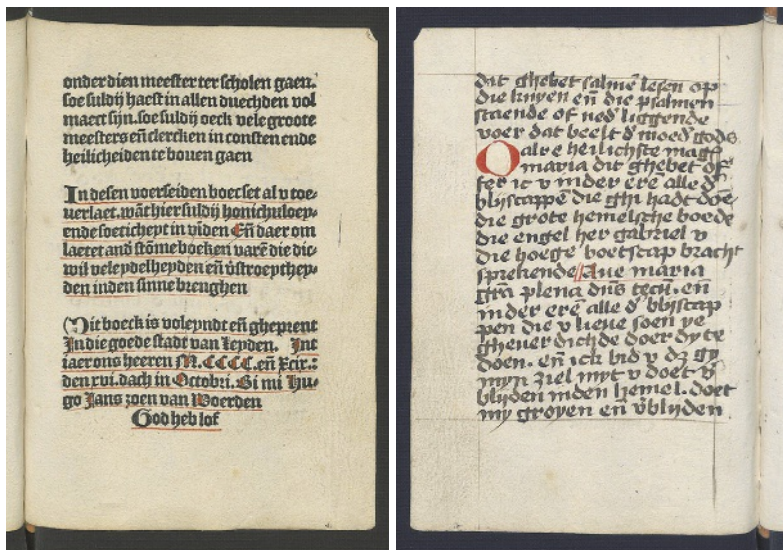 onder dien meester ter scholen gaen.
soe suldij haest in allen duechden vol
maect sijn. soe suldij oeck vele groote
meesters eñ clercken in consten ende
heilicheiden te bouen gaen
In desen voerseiden boec set al v toe-
uerlaet. wãt hier suldij honichuloey-
ende soeticheyt in viden Eñ daer om
laetet and stõme boeken varẽ die dic-
wil vele ydelheyden eñ v̄stroeythey-
den inden sinne brenghen
Dit boeck is voleyndt eñ gheprent
In die goede stadt van Leyden. Int
iaer ons heeren M.CCCC. eñ xcix.:
den xvi. dach in Octobri. Bi mi Hu-
go Jans zoen van Woerden
God heb lof
dat ghebet salmē lesen op
die knyen eñ die psalmen
staende of ned̛ liggende
voer dat beelt d̛ moed̛ gods
O alre heilichste magt
maria dit ghebet of
fer ic v inder ere alle d̛
blijscappē die ghi hadt doē
die grote hemelsche boede
die engel her gabriel v
die hoege boetscap bracht
sprekende Aue maria
grā plena dñs tecū. en
inder erē alle d̛ blijscap
pen die v lieue soen ye
gheuer dichde doer dy te
doen. en ick bid v dz gy
myn ziel myt v doet v̄
blijden inden hemel. doet
my groyen en v̄blijden